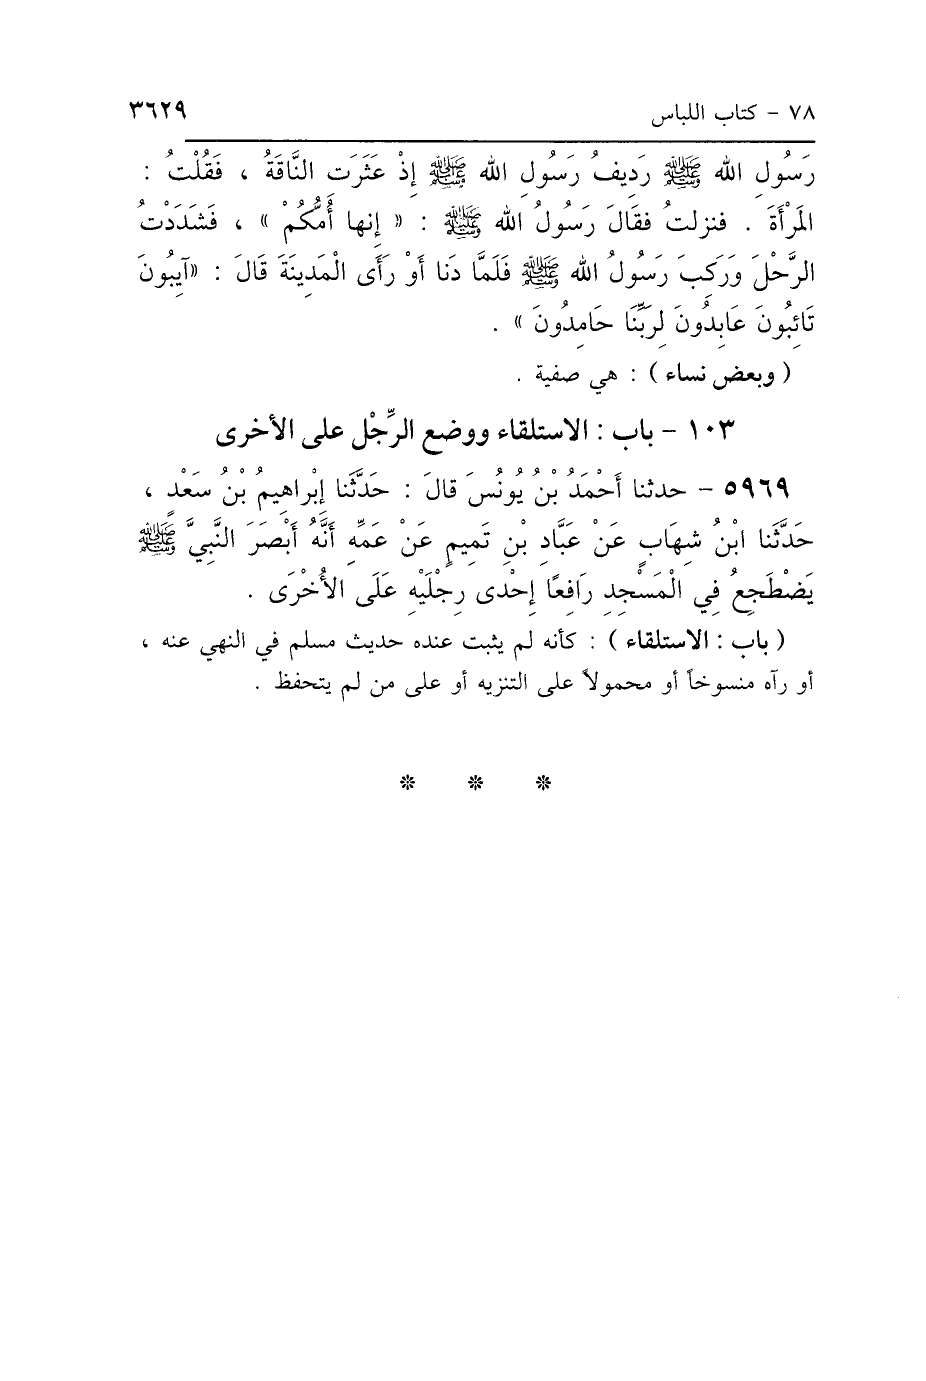 ٧٨ - كتاب اللباس ٣٦٢٩
رَسُولِ الله ﷺ رَدِيفُ رَسُولِ الله ﷺ إِذْ عَثَرَت النَّاقَةُ ، فَقُلْتُ :
المَرْأَةَ . فنزلتُ فقَالَ رَسُولُ الله ﷺ : « إنها أُمُّكُمْ » ، فَشَدَدْتُ
الرَّحْلَ وَرَكِبَ رَسُولُ الله ﷺ فَلَمَّا دَنا أَوْ رَأَى الْمَدِينَةَ قَالَ : «آيِبُونَ
تَائِبُونَ عَابِدُونَ لِرَبِّنَا حَامِدُونَ » .
( وبعض نساء ) : هي صفية .
١٠٣ - باب : الاستلقاء ووضع الرِّجْل على الأخرى
٥٩٦٩ - حدثنا أَحْمَدُ بْنُ يُونُسَ قالَ : حَدَّثَنا إِبْراهِيمُ بْنُ سَعْدٍ ،
حَدَّثَنا ابْنُ شِهَابٍ عَنْ عَبَّادِ بْنِ تَمِيمٍ عَنْ عَمِّهِ أَنَّهُ أَبْصَرَ النَّبِيَّ ﷺ
يَضْطَجِعُ فِي الْمَسْجِدِ رَافِعًا إِحْدى رِجْلَيْهِ عَلَى الأُخْرَى .
( باب : الاستلقاء ) : كأنه لم يثبت عنده حديث مسلم في النهي عنه ،
أو رآه منسوخاً أو محمولاً على التنزيه أو على من لم يتحفظ .
* * *